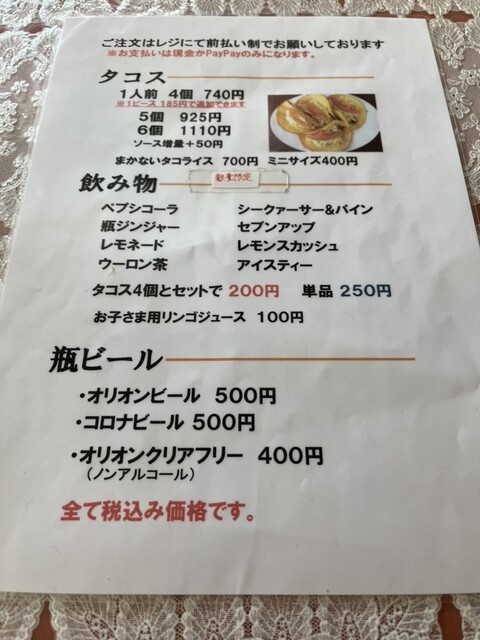 ご注文はレジにて前払い制でお願いしております
※お支払いは現金かPayPayのみになります。
タコス
1人前 4個 740円
※1ピース 185円で追加できます
5個 925円
6個 1110円
ソース増量+50円
まかないタコライス 700円 ミニサイズ400円
数量限定
飲み物
ペプシコーラ シークァーサー&パイン
瓶ジンジャー セブンアップ
レモネード レモンスカッシュ
ウーロン茶 アイスティー
タコス4個とセットで 200円 単品 250円
お子さま用リンゴジュース 100円
瓶ビール
・オリオンビール 500円
・コロナビール 500円
・オリオンクリアフリー 400円
(ノンアルコール)
全て税込み価格です。